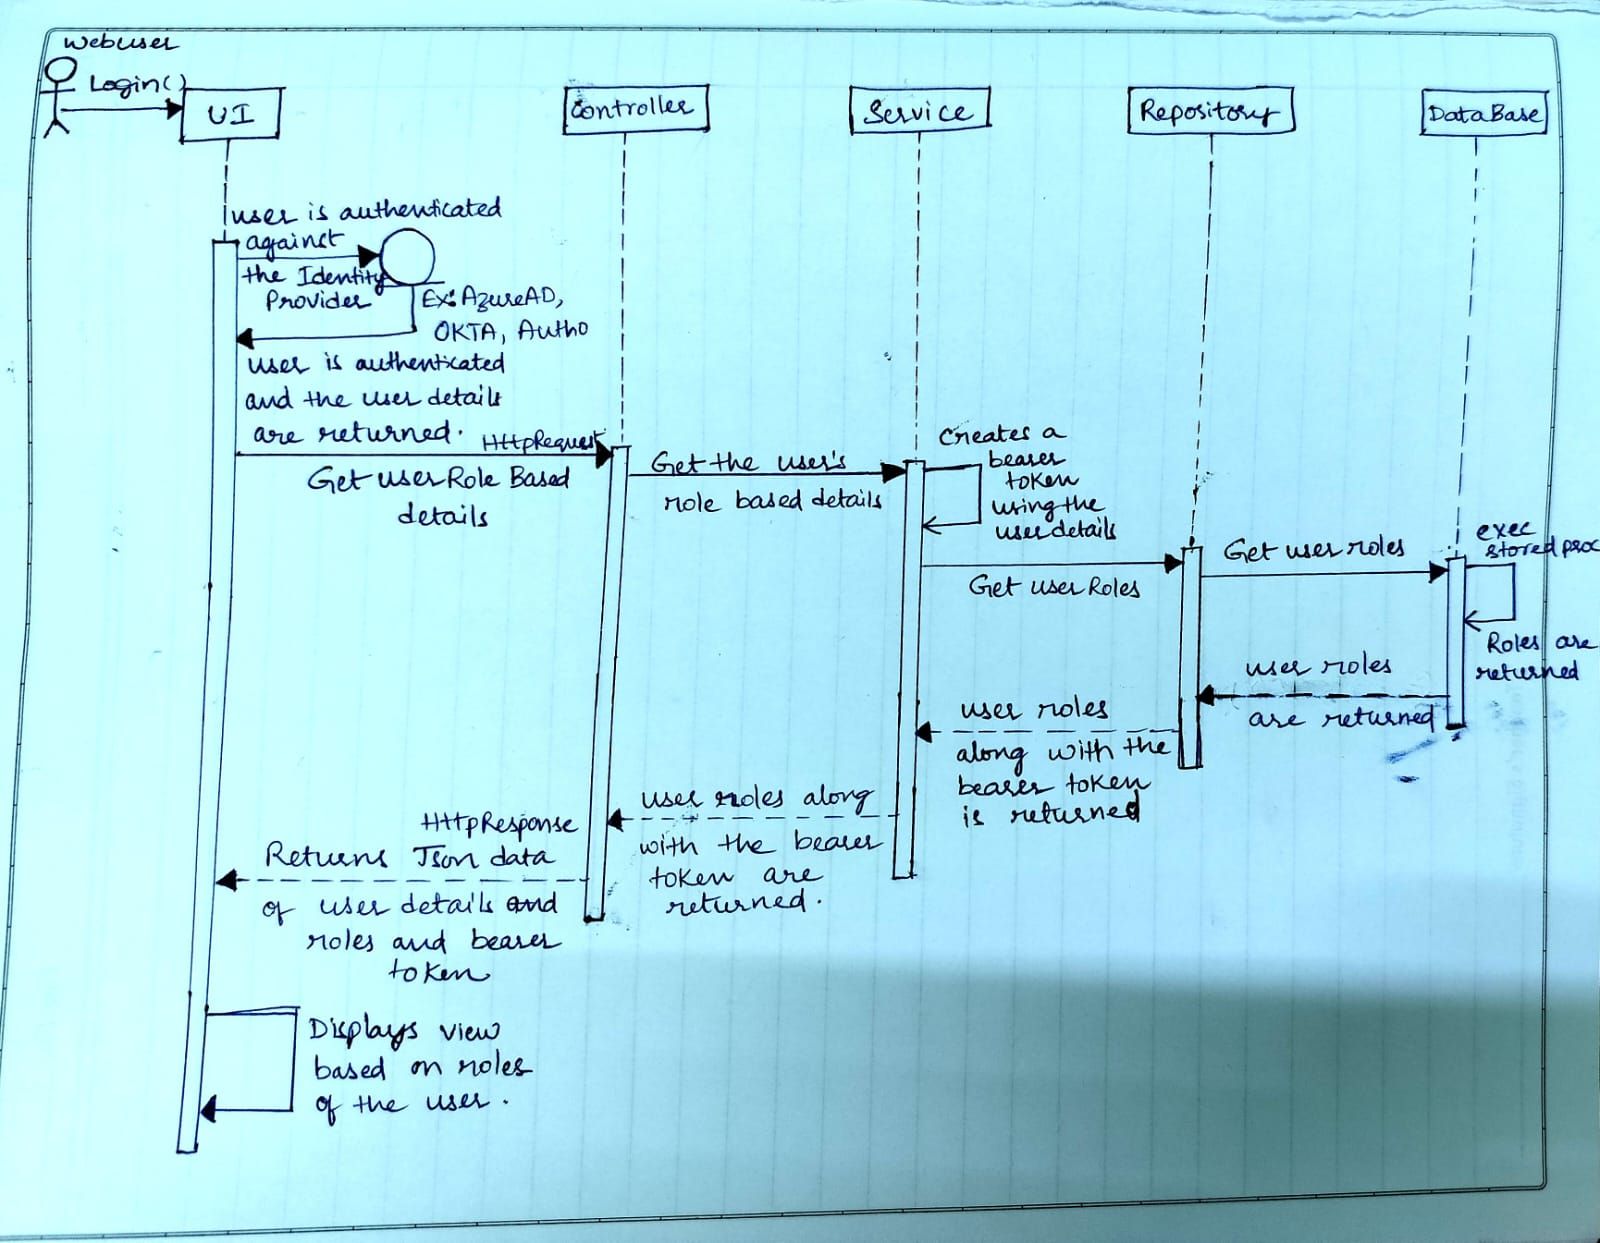 Webuser
Login()
UI
Controller
Service
Repository
DataBase
user is authenticated
against
the Identity
Provider
Ex: AzureAD,
OKTA, Autho
user is authenticated
and the user details
are returned.
HttpRequest
Get userRole Based
details
Get the user's
role based details
Creates a
bearer
token
using the
user details
Get user Roles
Get user roles
exec
stored proc
Roles are
returned
user roles
are returned
user roles
along with the
bearer token
is returned
user roles along
with the bearer
token are
returned.
HttpResponse
Returns Json data
of user details and
roles and bearer
token
Displays view
based on roles
of the user.